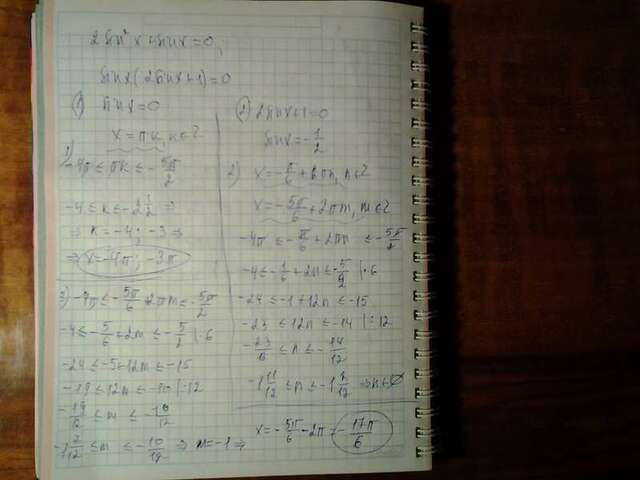 2 sin² x + sin x = 0,
sin x (2 sin x + 1) = 0
① sin x = 0
x = πk, k ∈ Z
1) -4π ≤ πk ≤ -5π/2
-4 ≤ k ≤ -2 1/2 ⇒
⇒ k = -4; -3 ⇒
⇒ x = -4π; -3π
3) -4π ≤ -5π/6 + 2πm ≤ -5π/2
-4 ≤ -5/6 + 2m ≤ -5/2 |·6
-24 ≤ -5 + 12m ≤ -15
-19 ≤ 12m ≤ -10 |:12
-19/12 ≤ m ≤ -10/12
-1 7/12 ≤ m ≤ -10/12 ⇒ m = -1 ⇒
② 2 sin x + 1 = 0
sin x = -1/2
2) x = -π/6 + 2πn, n ∈ Z
x = -5π/6 + 2πm, m ∈ Z
-4π ≤ -π/6 + 2πn ≤ -5π/2
-4 ≤ -1/6 + 2n ≤ -5/2 |·6
-24 ≤ -1 + 12n ≤ -15
-23 ≤ 12n ≤ -14 |:12
-23/12 ≤ n ≤ -14/12
-1 11/12 ≤ n ≤ -1 2/12 ⇒ n ∈ ∅
x = -5π/6 - 2π = -17π/6